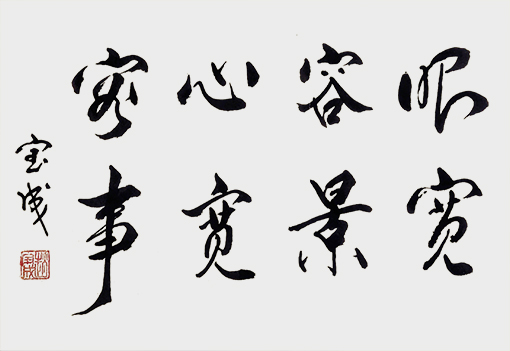 眼宽
容景
心宽
容事
宝成